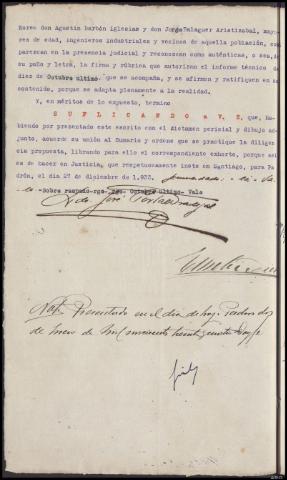 neros don Agustin Barbón Iglesias y don Jorge Balaguer Aristizabal, mayo-
res de edad, ingenieros industriales y vecinos de aquella población, com-
parezcan en la presencia judicial y reconozcan como auténticas, o sea, de
su puño y letra, la firma y rúbrica que autorizan el informe técnico de
diez de Octubre último que se acompaña, y se afirmen y ratifiquen en su
contenido, porque se adapta plenamente a la realidad.
Y, en méritos de lo expuesto, termino
SUPLICANDO a V. E, que, ha-
biendo por presentado este escrito con el dictamen pericial y dibujo ad-
junto, acuerde su unión al Sumario y ordene que se practique la diligen-
cia propuesta, librando para ello el correspondiente exhorto, porque así
es de hacer en Justicia, que respetuosamente insto en Santiago, para Pa-
drón, el día 27 de diciembre de 1.933.
Octubre último- Vale
Ldo José
Nota Presentado en el día de hoy. Padrón dos
de Enero de mil novecientos treinta y cuatro Doy fe